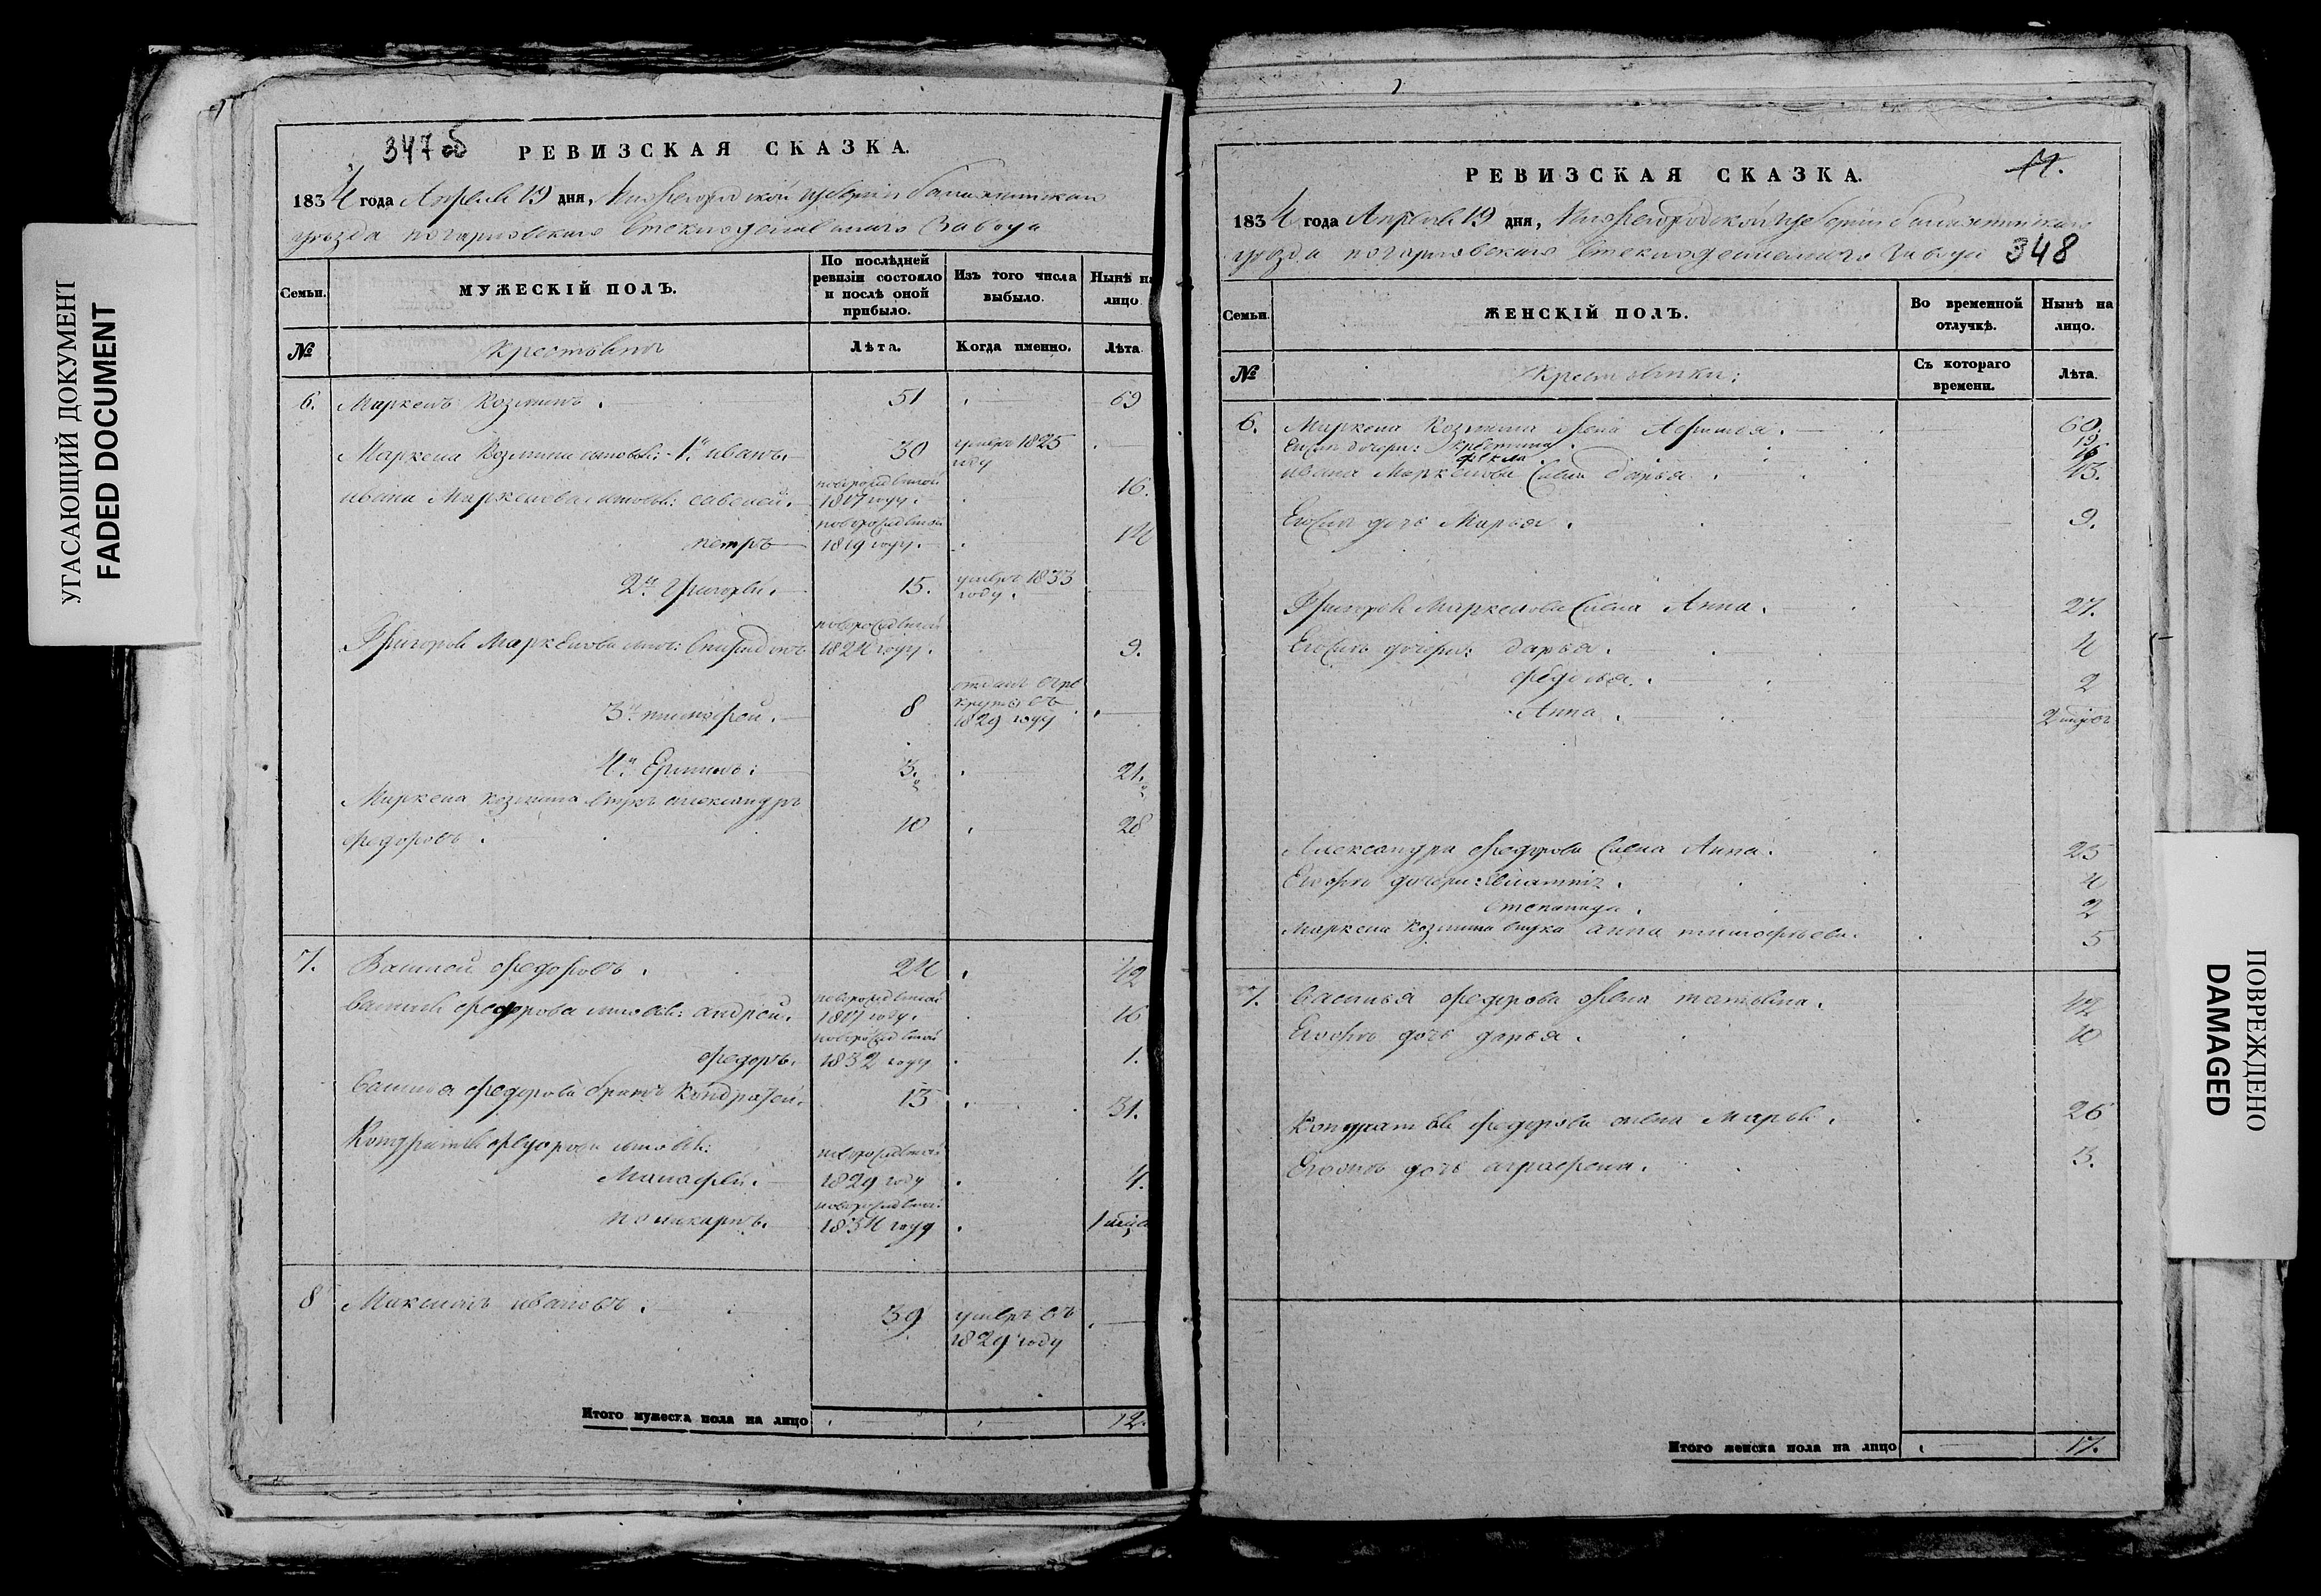 УГАСАЮЩИЙ ДОКУМЕНТ
FADED DOCUMENT
347 об
РЕВИЗСКАЯ СКАЗКА.
1834 года Апреля 19 дня, Нижегородской губернии
уезда Стеклоделаемого Завода
Семьи.
МУЖЕСКІЙ ПОЛЪ.
По послѣдней ревизіи состояло и послѣ оной прибыло.
Изъ того числа выбыло.
Нынѣ на лицо
№
Крестьяне
Лѣта.
Когда именно.
Лѣта
6. Маркелъ Козминъ. 51 69
Маркела Козмина сыновья: 1й иванъ. 30 умеръ 1825 году
ивана Маркелова сыновья: савелей. новорожденной 1817 году. 16.
петръ новорожденной 1819 году. 14
2й Григорей. 15. умеръ 1833 году.
Григорья Маркелова сынъ: Спиридонъ новорожденной 1824 году. 9.
3й тимофей. 8 отданъ въ рекруты въ 1829 году
4й Ермилъ: 3. 21.
Маркела козмина александръ
федоровъ. 10 28
7. Василей федоровъ. 24 42
Василья федорова сыновья: андрей. новорожденной 1817 году. 16
федоръ. новорожденной 1832 году 1.
Василья федорова братъ Кондратей. 13 31.
Кондратья федорова сыновья:
новорожденной 1829 году 4.
поликарпъ. новорожденной 1834 году 1
8 Максимъ ивановъ. 39 умеръ въ 1829 году
Итого мужеска пола на лицо 12.
РЕВИЗСКАЯ СКАЗКА.
11.
1834 года Апреля 19 дня, Нижегородской губернии
уезда Стеклоделаемого Завода
348
Семьи.
ЖЕНСКІЙ ПОЛЪ.
Во временной отлучкѣ.
Нынѣ на лицо.
№
Крестьянки:
Съ котораго времени.
Лѣта.
6. Маркела Козмина жена Афимья. 60.
Ево дочери:
фекла
ивана Маркелова жена дарья. 43.
дочь Марья. 9.
Григорья Маркелова жена Анна. 27.
дочери: дарья. 4
федосья. 2
Анна. 2
Александра федорова жена Анна. 25
дочери: 4
степанида. 2
Маркела Козмина внука анна тимофеева. 5
7. Василья федорова жена татьяна. 42
дочь дарья. 10
Кондратья федорова жена Марья. 26
дочь аграфена. 3.
Итого женска пола на лицо 17.
ПОВРЕЖДЕНО
DAMAGED